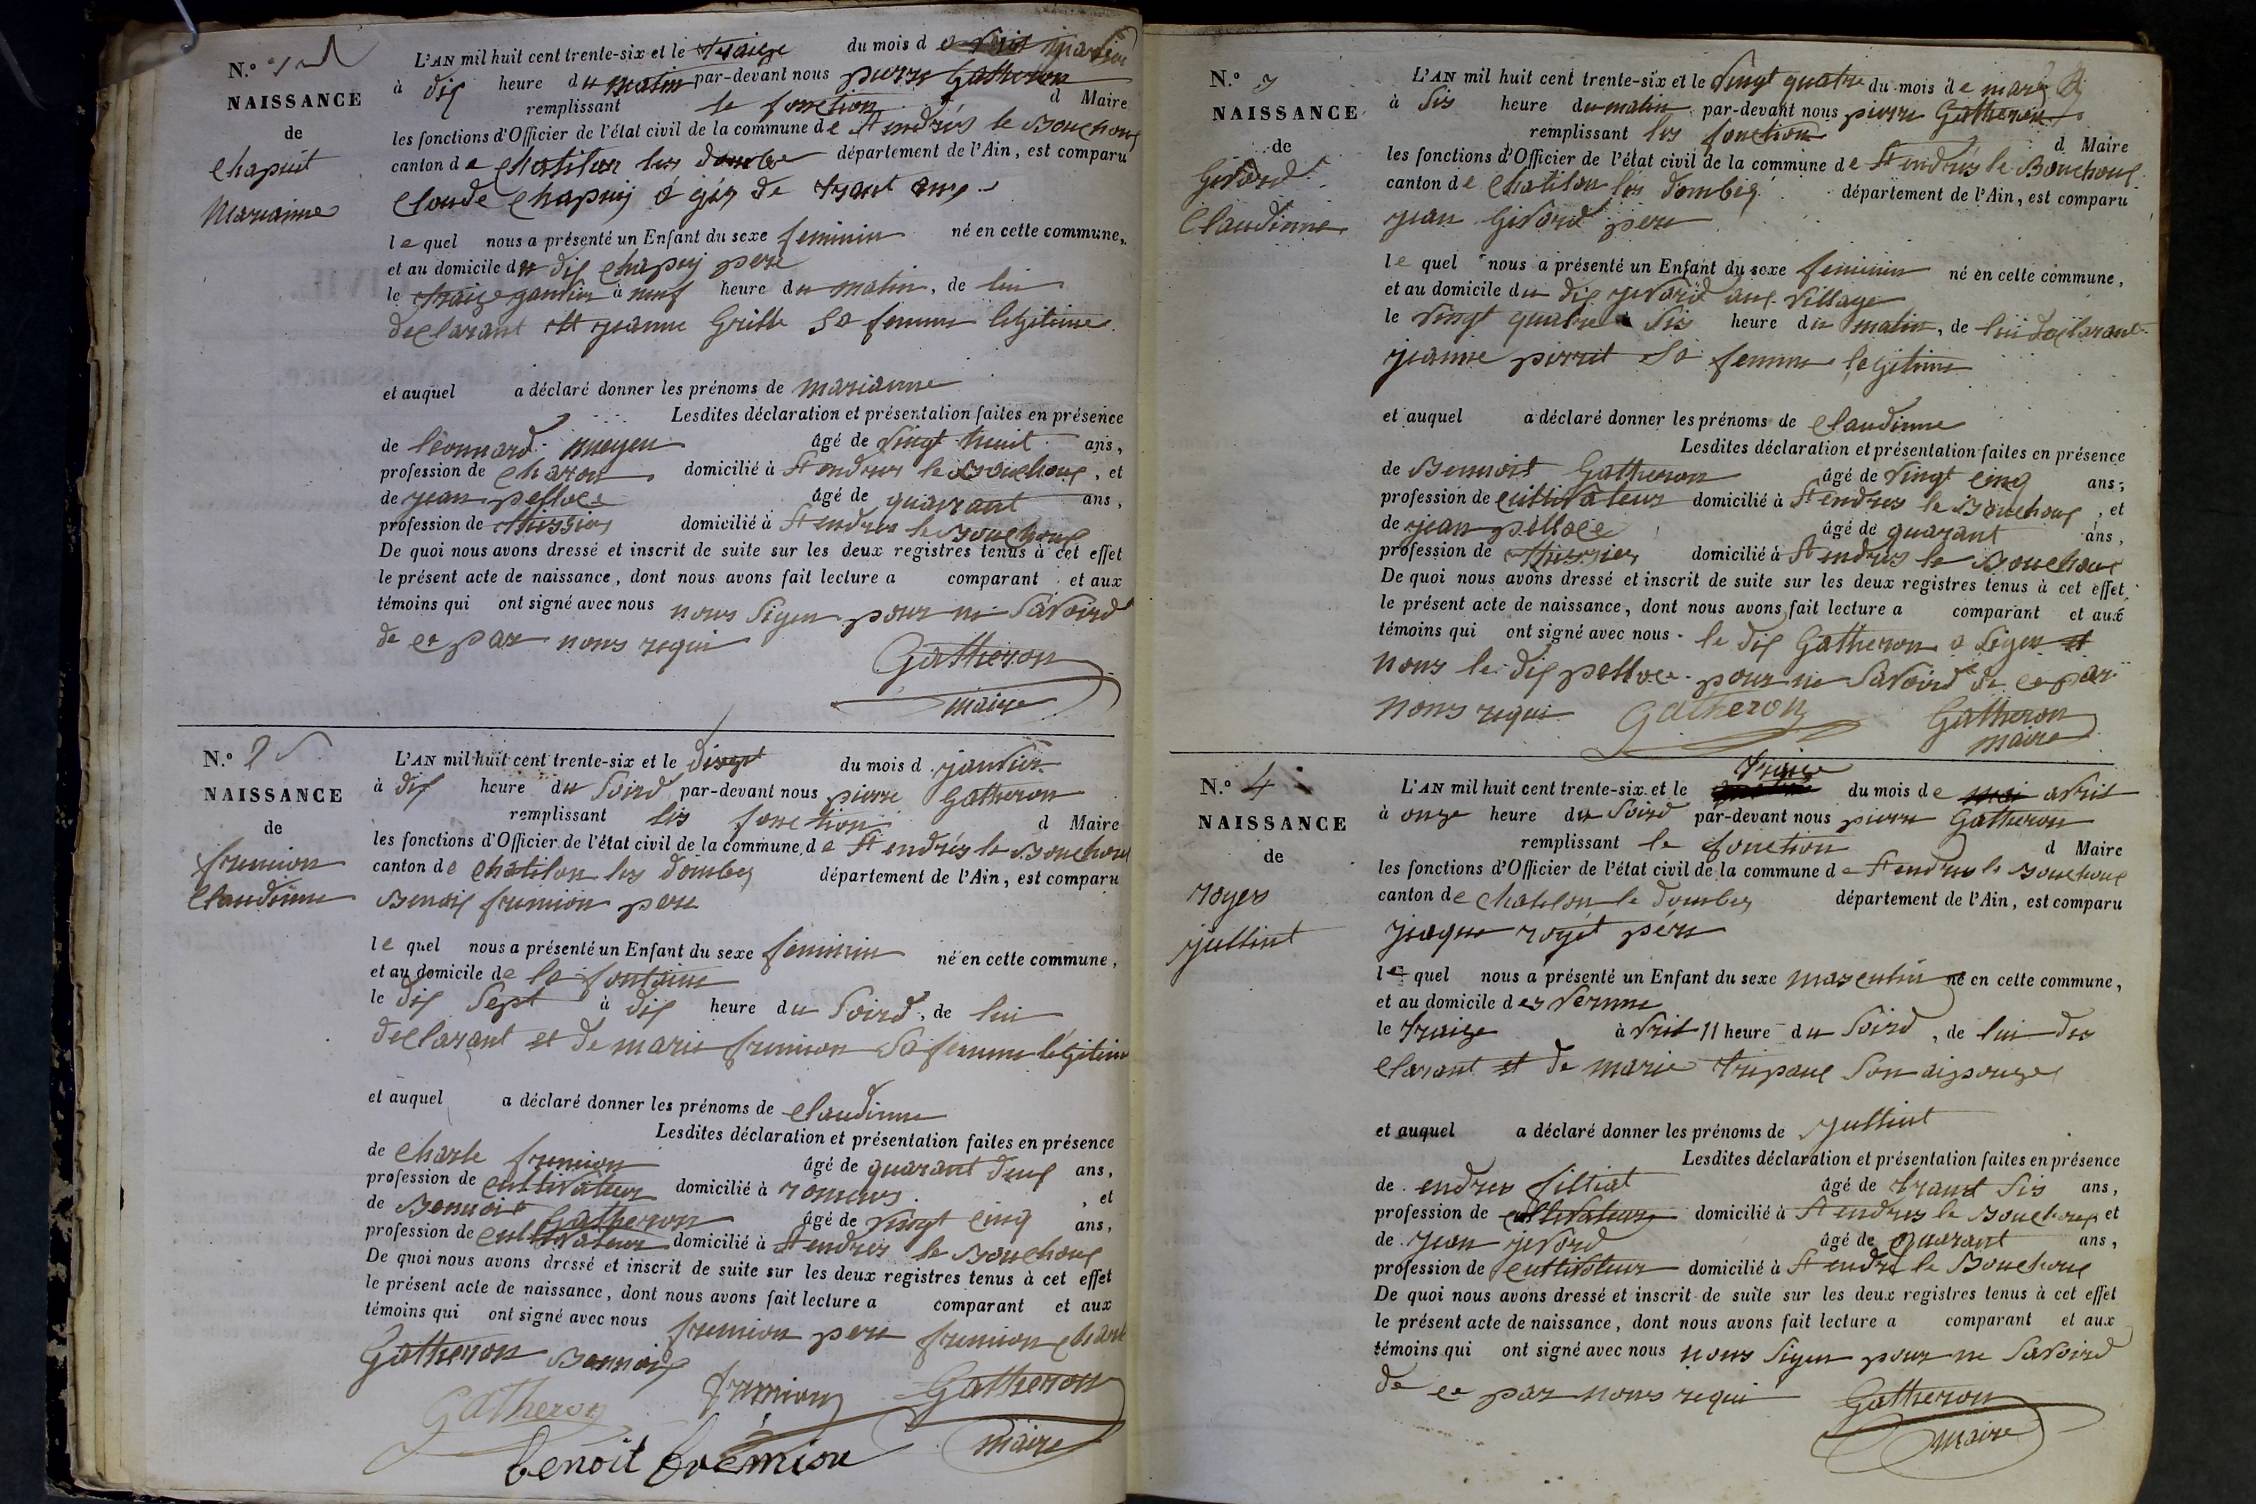 N.° 1
NAISSANCE
de
Chapuit
Marianne
L'AN mil huit cent trente-six et le traize du mois d janvier
à dix heure du matin par-devant nous pierre Gatheron
remplissant le fonction d Maire
les fonctions d'Officier de l'état civil de la commune de St endrés le Bouchoux
canton de Chatilon les dombe département de l'Ain, est comparu
Cloude Chapuij ó gés de trant ans
le quel nous a présenté un Enfant du sexe feminin né en cette commune,
et au domicile du dix Chapuj pere
le traize janvier à neuf heure du matin, de lui
declarant et jeanne Grille sa femme legitime
et auquel a déclaré donner les prénoms de marianne
Lesdites déclaration et présentation faites en présence
de léonnard moyen âgé de vingt huit ans,
profession de Charon domicilié à St endres le Bouchoux, et
de jean pelloce âgé de quarant ans,
profession de thissies domicilié à St endres le Bouchoux
De quoi nous avons dressé et inscrit de suite sur les deux registres tenus à cet effet
le présent acte de naissance, dont nous avons fait lecture a comparant et aux
témoins qui ont signé avec nous nous Signe pour ne Savoird
de ce par nous requi
Gatheron
maire
N.° 2
NAISSANCE
de
fremion
Claudinne
L'AN mil huit cent trente-six et le disept du mois d janvier
à dix heure du Soird par-devant nous pierre Gatheron
remplissant les fonction d Maire
les fonctions d'Officier de l'état civil de la commune de St endrés le Bouchoux
canton de Chatilon les dombes département de l'Ain, est comparu
Benoix fremion pere
le quel nous a présenté un Enfant du sexe feminin né en cette commune,
et au domicile de la fontaine
le dix Sept à dix heure du Soird, de lui
declarant et de marie fremion Sa femme légitime
et auquel a déclaré donner les prénoms de Claudinne
Lesdites déclaration et présentation faites en présence
de Charle fremion âgé de quarant deux ans,
profession de cultivateur domicilié à romans, et
de Bennoit Gatheron âgé de vingt cinq ans,
profession de cultivateur domicilié à St endres le Bouchoux
De quoi nous avons dressé et inscrit de suite sur les deux registres tenus à cet effet
le présent acte de naissance, dont nous avons fait lecture a comparant et aux
témoins qui ont signé avec nous fremion pere fremion Charle
Gatheron Bennoix
Gatheron fremion Gatheron
benoit fremion maire
N.° 3
NAISSANCE
de
Givord
Claudinne
L'AN mil huit cent trente-six et le vingt quatre du mois de mars
à Sis heure du matin par-devant nous pierre Gatheron
remplissant les fonction d Maire
les fonctions d'Officier de l'état civil de la commune de St endrés le Bouchoux
canton de Chatilon les dombes département de l'Ain, est comparu
jean Givord pere
le quel nous a présenté un Enfant du sexe feminin né en cette commune,
et au domicile du dix jivord aux village
le vingt quatre à Sis heure du matin, de lui declarant
jeanne perret Sa femme legitime
et auquel a déclaré donner les prénoms de Claudinne
Lesdites déclaration et présentation faites en présence
de Bennoit Gatheron âgé de vingt cinq ans,
profession de cultivateur domicilié à St endres le Bouchoux, et
de jean pelloce âgé de quarant ans,
profession de thissier domicilié à St endres le Bouchoux
De quoi nous avons dressé et inscrit de suite sur les deux registres tenus à cet effet
le présent acte de naissance, dont nous avons fait lecture a comparant et aux
témoins qui ont signé avec nous le dix Gatheron a Signe et
nons le dix pelloce pour ne Savoird de ce par
nous requi Gatheron Gatheron
maire
N.° 4
NAISSANCE
de
royer
jullint
L'AN mil huit cent trente-six et le traize du mois de mai avril
à onze heure du Soird par-devant nous pierre Gatheron
remplissant le fonction d Maire
les fonctions d'Officier de l'état civil de la commune de St endres le Bouchoux
canton de Chatelon le dombes département de l'Ain, est comparu
jaque royét pére
le quel nous a présenté un Enfant du sexe masculin né en cette commune,
et au domicile des Vernne
le traize à vril 11 heure du Soird, de lui des
clarant et de marie tripaux Son aipouze
et auquel a déclaré donner les prénoms de jullint
Lesdites déclaration et présentation faites en présence
de endres filliat âgé de trant Sis ans,
profession de cultivateur domicilié à St endres le Bouchoux et
de jean jivord âgé de quarant ans,
profession de cultivateur domicilié à St endre le Bouchoux
De quoi nous avons dressé et inscrit de suite sur les deux registres tenus à cet effet
le présent acte de naissance, dont nous avons fait lecture a comparant et aux
témoins qui ont signé avec nous nous Signe pour ne Savoird
de ce par nous requi Gatheron
maire